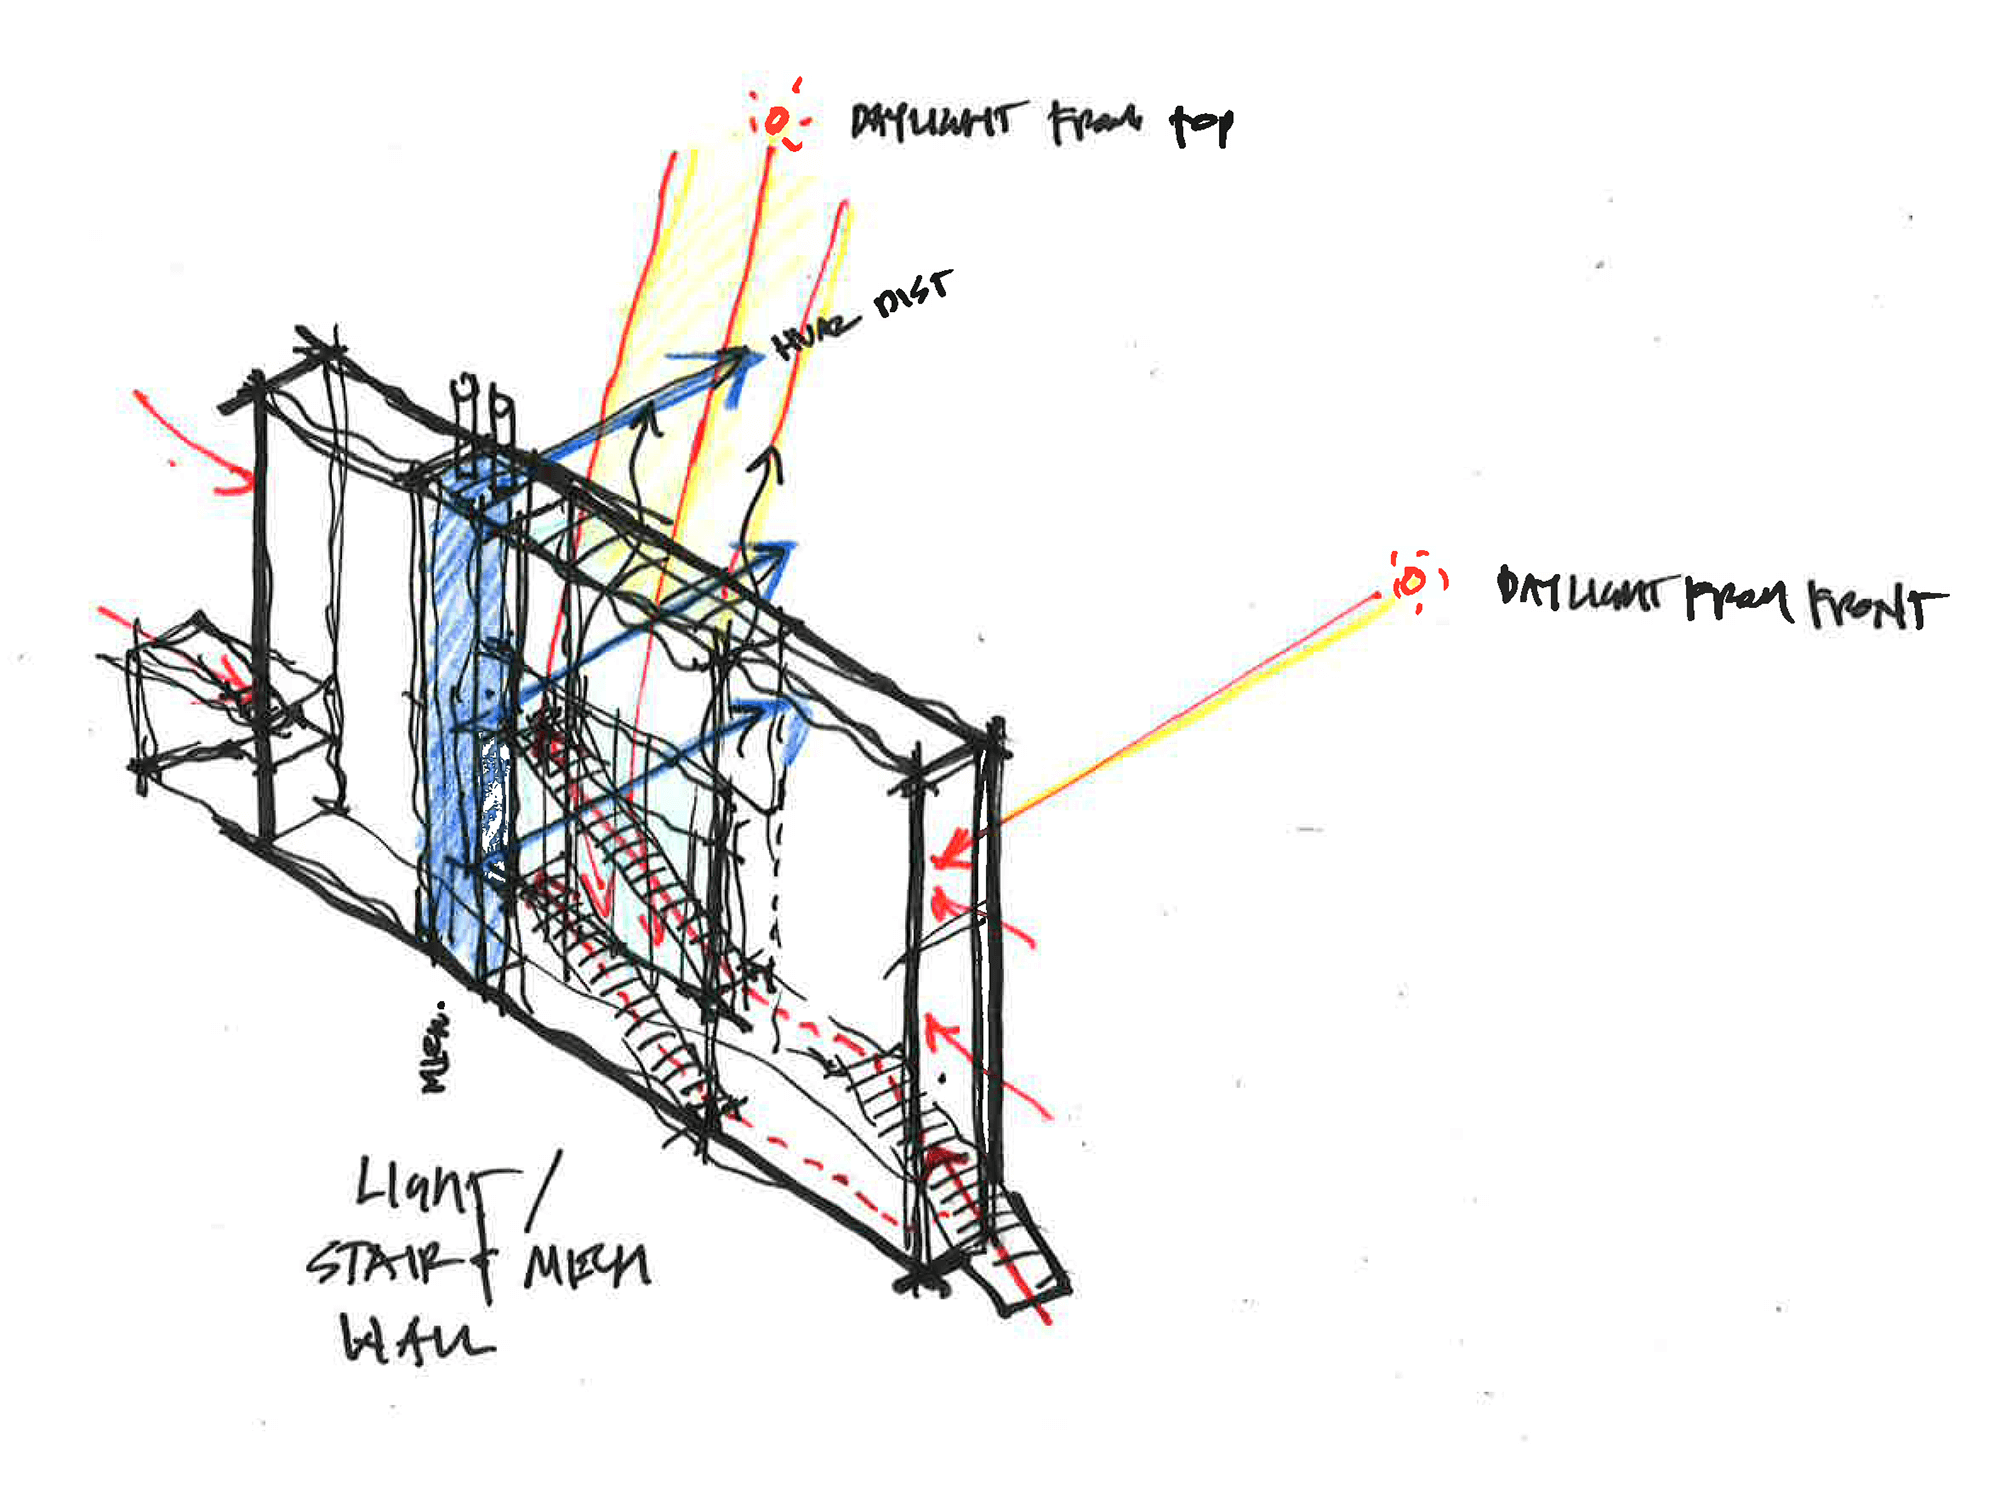 DAYLIGHT FROM TOP
HVAC DIST
DAYLIGHT FROM FRONT
MECH.
LIGHT /
STAIR + MECH
WALL